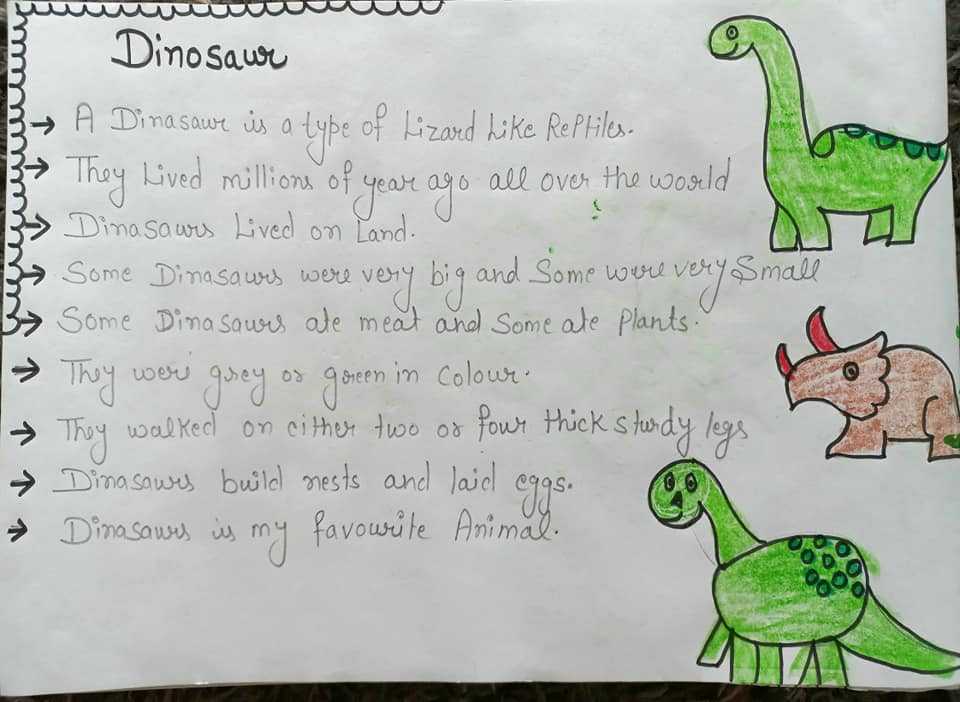 Dinosaur
→ A Dinasaur is a type of Lizard Like Reptiles.
→ They Lived millions of year ago all over the world
→ Dinasaurs Lived on Land.
→ Some Dinasaurs were very big and Some were very Small
→ Some Dinasaurs ate meat and Some ate Plants.
→ They were grey or green in Colour.
→ They walked on either two or four thick sturdy legs
→ Dinasaurs build nests and laid eggs.
→ Dinasaurs is my favourite Animal.